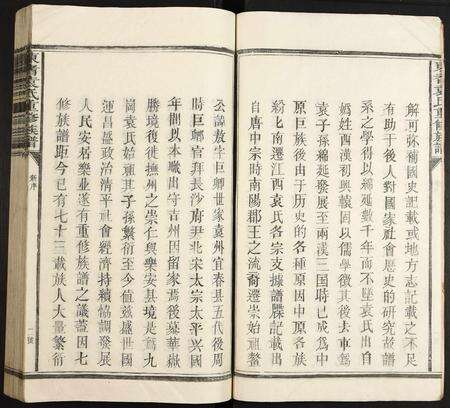 解可弥補國史記載或地方志記載之不足
有助于後人對國家社會歷史的研究故譜
系之學得以綿延數千年而不墜袁氏出自
媯姓西漢初興轅固以儒學徵其後去車爲
袁子孫綿延發展至兩漢三國時已成爲中
原巨族後由于历史的各種原因中原各族
紛匕南遷江西袁氏各宗支據譜牒記載出
自唐中宗時南陽郡王之流裔遷崇始祖鏊
公諱放字巨卿世家袁州宜春縣五代後周
時巨卿官拜長沙府尹北宋太宗太平兴國
年間以本職出守吉州因留家焉後葉華嶽
勝境復徙撫州之崇仁與樂安县境是爲九
崗袁氏始祖其子孫繁衍至今值兹盛世國
運昌盛政治清平社會經濟持續協調發展
人民安居樂业遂有重修族譜之議蓋因七
修族譜距今已有七十三載族人大量繁衍
東滸袁氏重修族譜
新序
二號